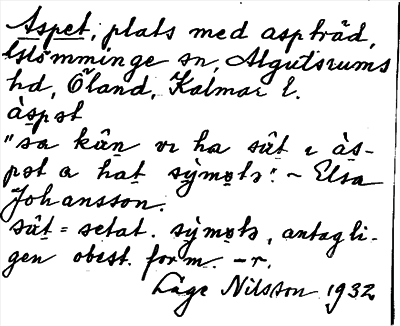 Aspet, plats med aspträd,
Glömminge sn, Algutsrums
hd, Öland, Kalmar l.
àspət
"sa kân vi ha sût ı às-
pət a hat sỳmətə". - Elsa
Johansson.
sût = setat. sỳmətə, antagli-
gen obest. form. -r.
Låge Nilsson 1932